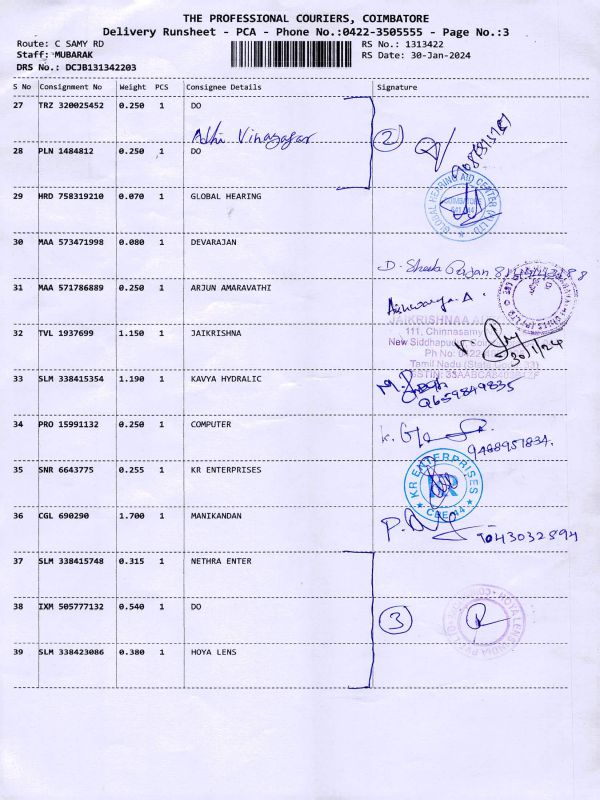 THE PROFESSIONAL COURIERS, COIMBATORE
Delivery Runsheet - PCA - Phone No.:0422-3505555 - Page No.:3
Route: C SAMY RD
Staff: MUBARAK
DRS No.: DCJB131342203
RS No.: 1313422
RS Date: 30-Jan-2024
S No Consignment No Weight PCS Consignee Details Signature
27 TRZ 320025452 0.250 1 DO
Adhi Vinayagar
2
28 PLN 1484812 0.250 1 DO
29 HRD 758319210 0.070 1 GLOBAL HEARING
GLOBAL HEARING AID CENTER (P) LTD
COIMBATORE
30 MAA 573471998 0.080 1 DEVARAJAN
31 MAA 571786889 0.250 1 ARJUN AMARAVATHI
Aishwarya. A
32 TVL 1937699 1.150 1 JAIKRISHNA
JAIKRISHNAA
111, Chinnasamy
New Siddhapudur
Ph No: 0422
Tamil Nadu (State Code: 33)
30/1/24
33 SLM 338415354 1.190 1 KAVYA HYDRALIC
9659849835
34 PRO 15991132 0.250 1 COMPUTER
9488951834.
35 SNR 6643775 0.255 1 KR ENTERPRISES
KR ENTERPRISES
KR
CBE-14
36 CGL 690290 1.700 1 MANIKANDAN
37 SLM 338415748 0.315 1 NETHRA ENTER
38 IXM 505777132 0.540 1 DO
3
HOYA LENS INDIA PVT LTD
39 SLM 338423086 0.380 1 HOYA LENS